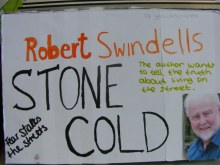 Robert Swindells
STONE
COLD
The author wants
to tell the truth
about living on
the street.
Fear Stalks
the Streets